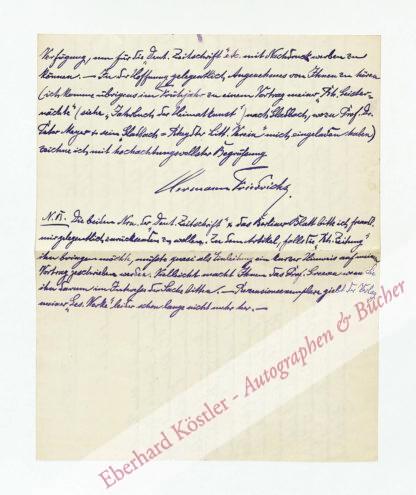 Verfügung, um für die Deut. Zeitschrift etc. mit Nachdruck werben zu
können. — In der Hoffnung gelegentlich Angenehmes von Ihnen zu hören
(ich komme übrigens im Frühjahr zu einem Vortrag meiner
nächte" (siehe "Jahrbuch der Heimatkunst") nach Gladbach, wozu Prof. Dr.
Meyer & sein mich eingeladen haben)
zeichne ich, mit hochachtungsvollster Begrüßung
Hermann Friedrichs
N.B. Die beiden Nrn. der Deut. Zeitschrift & das Berliner Blatt bitte ich, freundl.
mir gelegentlich zurücksenden zu wollen. Zu dem Artikel, falls die "Rh. Zeitung"
ihn bringen möchte, müßte quasi als Einleitung ein kurzer Hinweis auf meinen
Vortrag geschrieben werden. Vielleicht macht Ihnen das Prof. wenn Sie
ihn darum im Interesse der Sache bitten. — Rezensionsexemplare giebt der Verlag
meiner "Ges. Werke" leider schon lange nicht mehr her. —
Eberhard Köstler - Autographen & Bücher